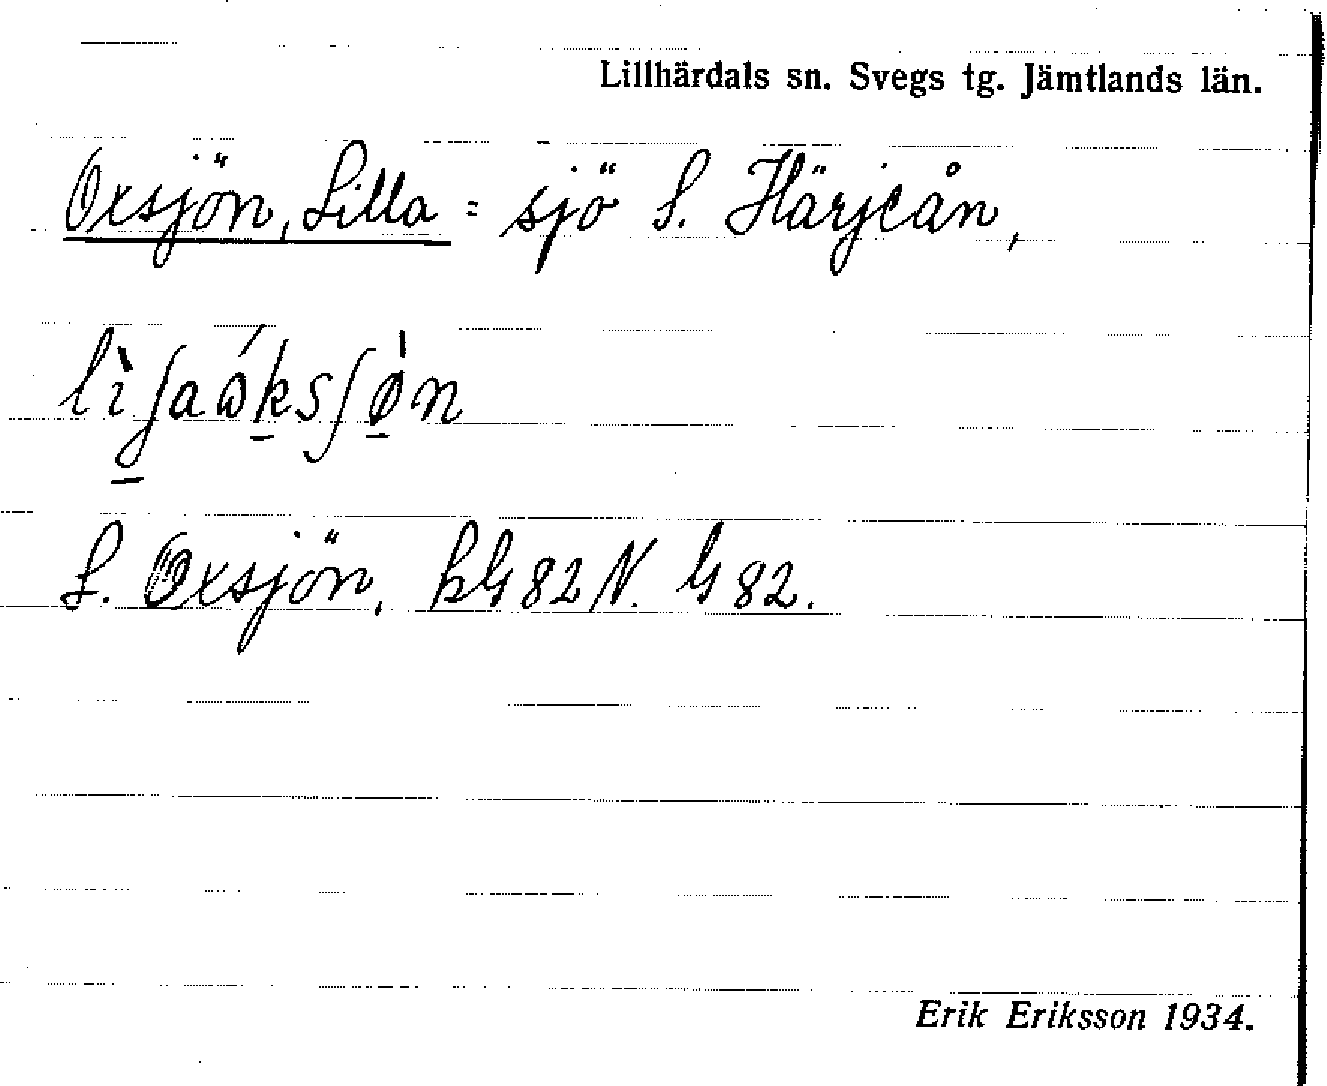 Lillhärdals sn. Svegs tg. Jämtlands län.
Oxsjön, Lilla = sjö S. Härjeån,
S. Oxsjön, hG 82 N. G 82.
Erik Eriksson 1934.